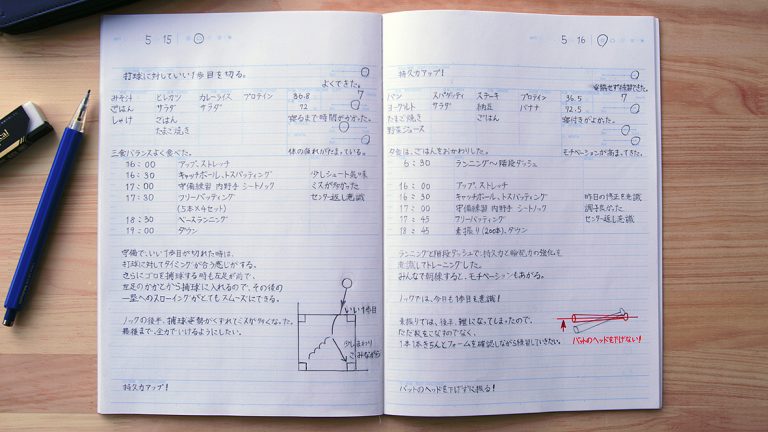 5 15
打球に対していい1歩目を切る。
よくできた。
みそ汁 ヒレカツ カレーライス プロテイン 36.8 7
ごはん サラダ サラダ 72
しゃけ ごはん 寝るまで時間がかかった。
たまご焼き
三食バランスよく食べた。 体の疲れがたまっている。
16:00 アップ、ストレッチ
16:30 キャッチボール、トスバッティング 少しシュート気味
17:00 守備練習 内野手 シートノック ミスが多かった
17:30 フリーバッティング センター返し意識
(5本×4セット)
18:30 ベースランニング
19:00 ダウン
守備で、いい1歩目が切れた時は、
打球に対してタイミングが合う感じがする。
さらにゴロを捕球する時も左足が前で、
左足のかかとから捕球に入れるので、その後の
一塁へのスローイングがとてもスムーズにできる。
ノックの後半、捕球姿勢がくずれてミスが多くなった。
最後まで、全力でいけるようにしたい。
いい1歩目
少しまわり
こみながら
持久力アップ!
5 16
持久力アップ!
できた。
パン スパゲッティ ステーキ プロテイン 36.5 7
ヨーグルト サラダ 納豆 バナナ 72.5
たまご焼き ごはん 寝付きがよかった。
野菜ジュース
夕食は、ごはんをおかわりした。 モチベーションが高まってきた。
6:30 ランニング〜階段ダッシュ
16:00 アップ、ストレッチ
16:30 キャッチボール、トスバッティング 昨日の修正を意識
17:00 守備練習 内野手 シートノック 調子良かった
17:45 フリーバッティング センター返し意識
18:45 素振り(200本)、ダウン
ランニングと階段ダッシュで、持久力と瞬発力の強化を
意識してトレーニングした。
みんなで朝練すると、モチベーションもあがる。
ノックでは、今日も1歩目を意識!
素振りでは、後半、雑になってしまったので、
ただ数をこなすのでなく、
1本1本きちんとフォームを確認しながら練習していきたい。
バットのヘッドを下げない!
バットのヘッドを下げずに振る!